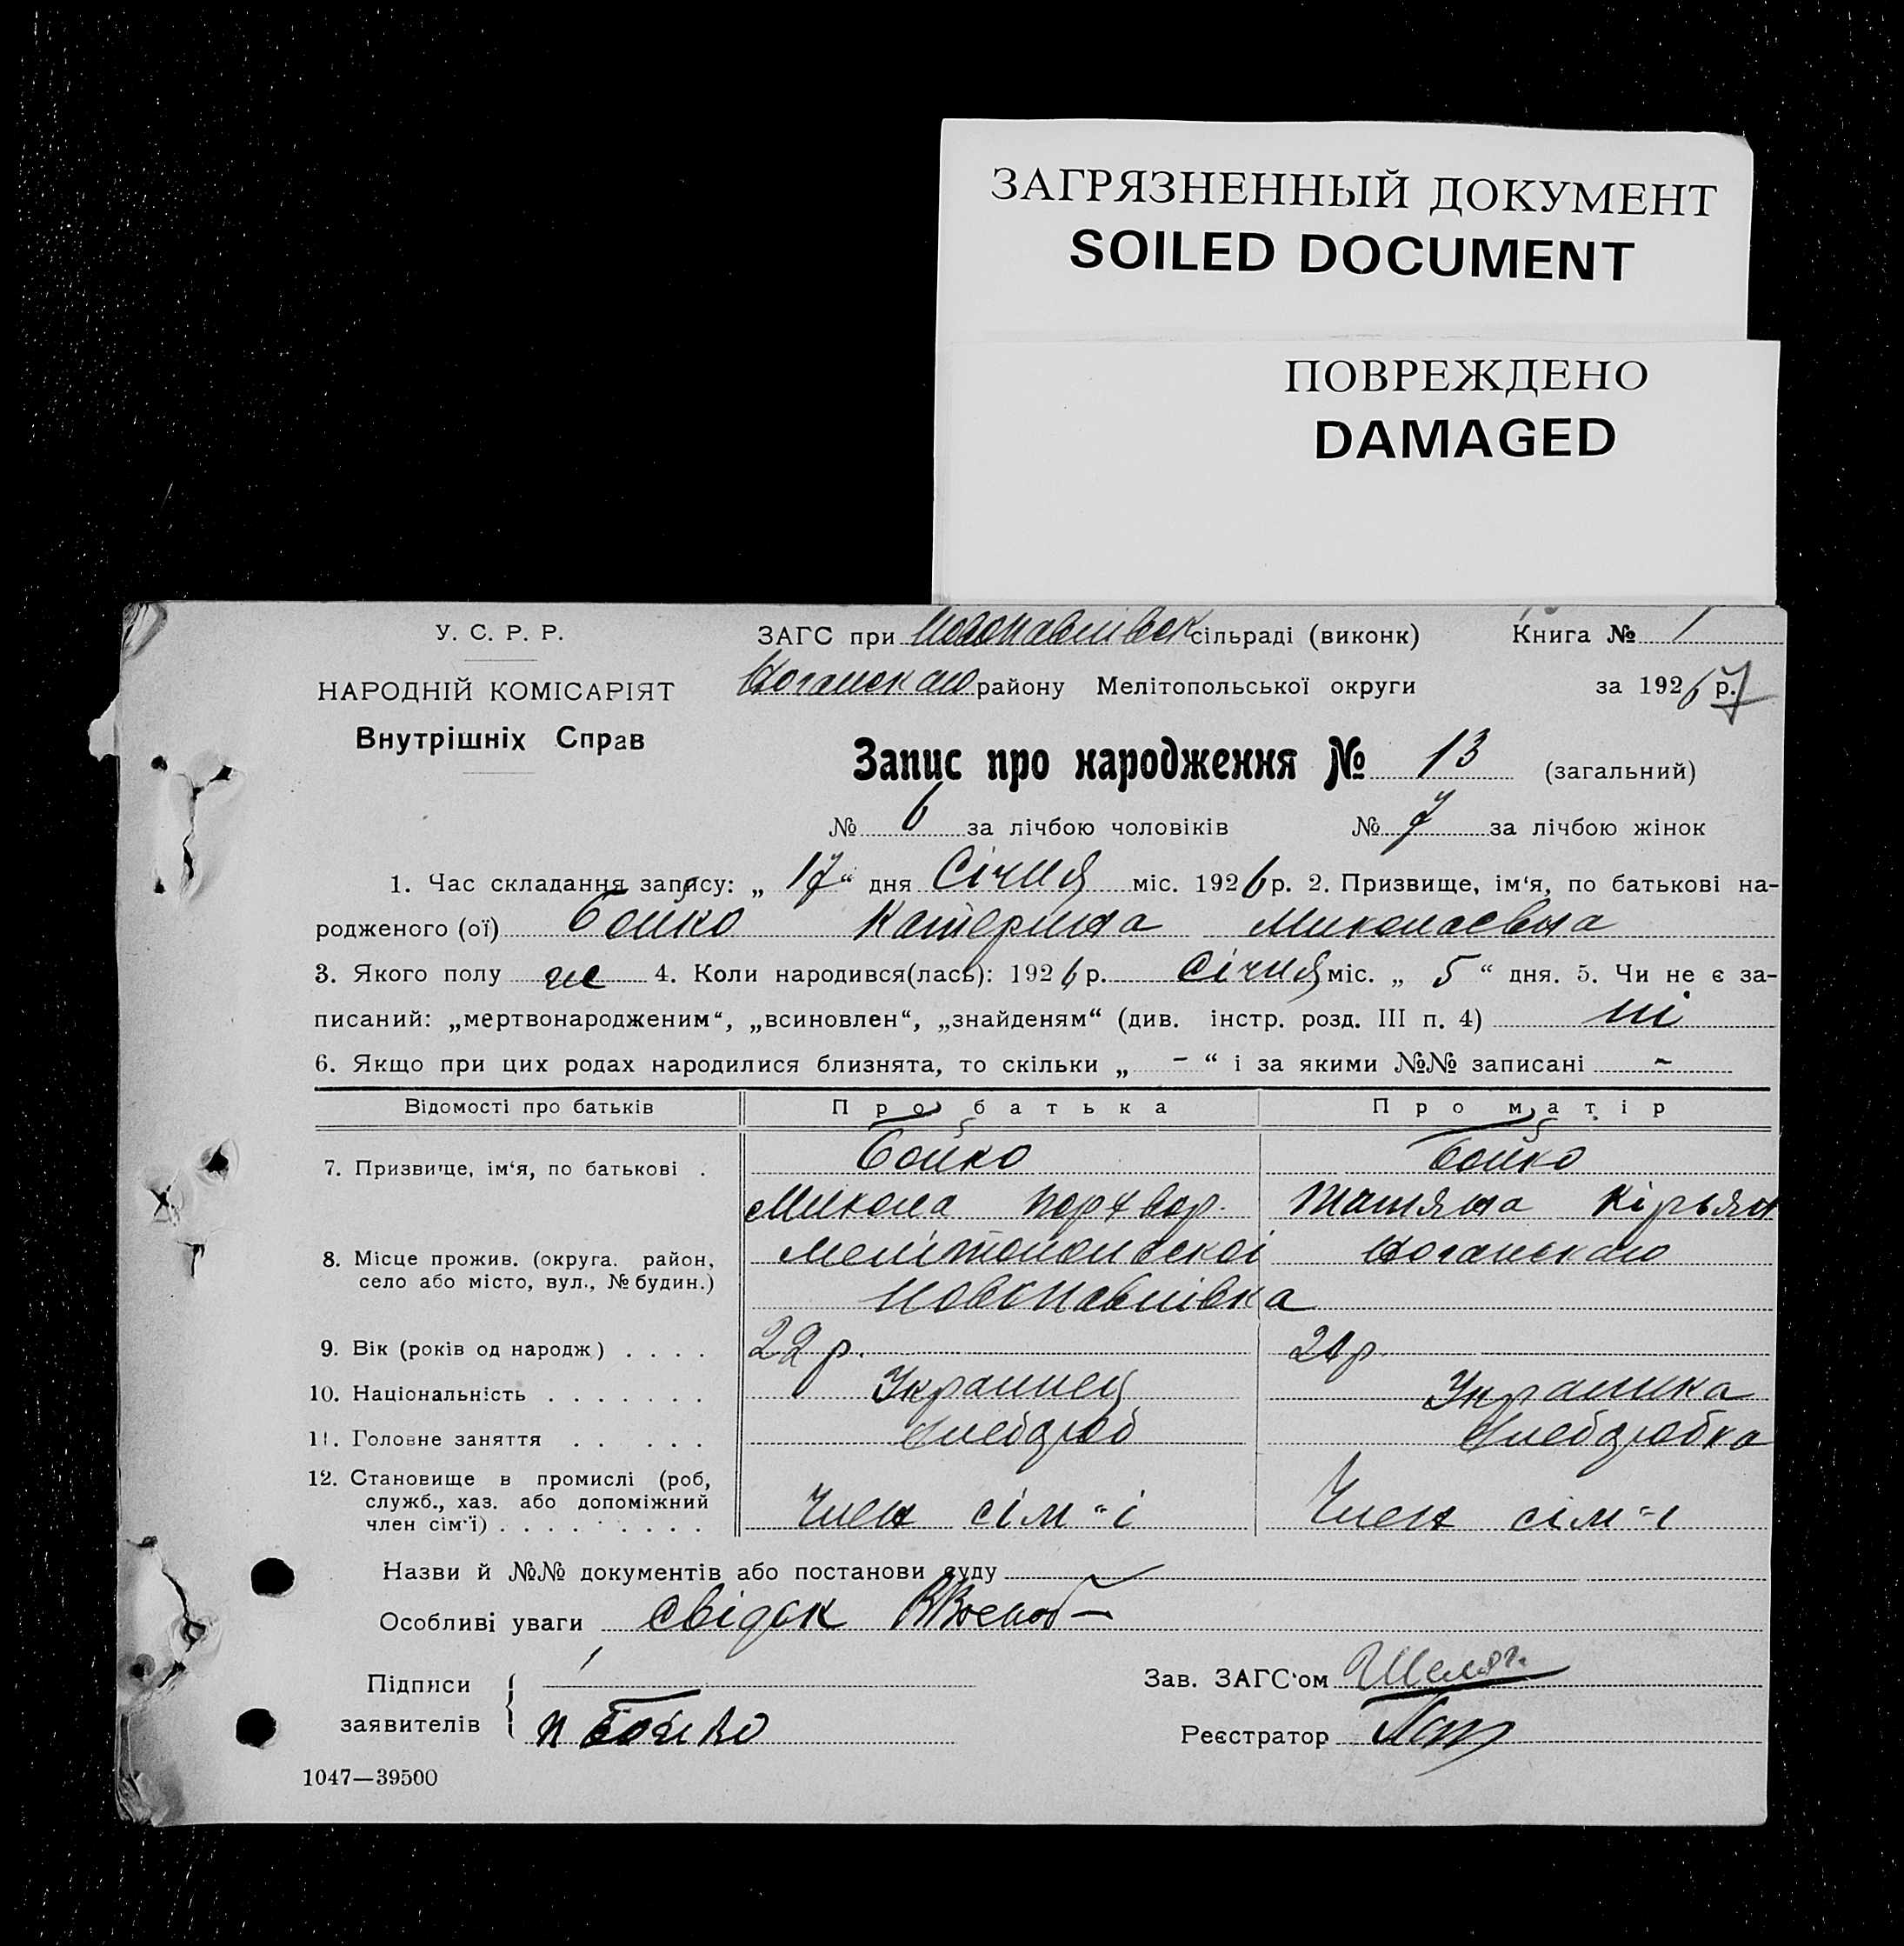 ЗАГРЯЗНЕННЫЙ ДОКУМЕНТ
SOILED DOCUMENT
ПОВРЕЖДЕНО
DAMAGED
У. С. Р. Р.
НАРОДНІЙ КОМІСАРІЯТ
Внутрішніх Справ
ЗАГС при Новопавлівск сільраді (виконк) Книга № 1
Ногайского району Мелітопольської округи за 1926 р. 7
Запис про народження № 13 (загальний)
№ 6 за лічбою чоловіків № 7 за лічбою жінок
1. Час складання запису: „ 17 “ дня Січня міс. 1926 р. 2. Призвище, ім‘я, по батькові на-
родженого (ої) Бойко Катерина Миколаевна
3. Якого полу же 4. Коли народився(лась): 1926 р. Січня міс. „ 5 “ дня. 5. Чи не є за-
писаний: „мертвонародженим“, „всиновлен“, „знайденям“ (див. інстр. розд. III п. 4) ні
6. Якщо при цих родах народилися близнята, то скільки „ - “ і за якими №№ записані ~
Відомості про батьків Про батька Про матір
7. Призвище, ім‘я, по батькові . Бойко Бойко
Микола Татяна Кірьян
8. Місце прожив. (округа. район, село або місто, вул., № будин.) Мелітопольскоі Ногайского
Новопавлівка
9. Вік (років од народж) . . . . 22 р. 21 р.
10. Національність . . . . . . . Украинец Украинка
11. Головне заняття . . . . . Хлебороб Хлеборобка
12. Становище в промислі (роб, служб., хаз. або допоміжний член сім'ї) . . . . . . . . . Член сім"і Член сім"і
Назви й №№ документів або постанови суду
Особливі уваги свідок
Підписи
заявителів п Бойко
Зав. ЗАГС‘ом
Реєстратор
1047—39500